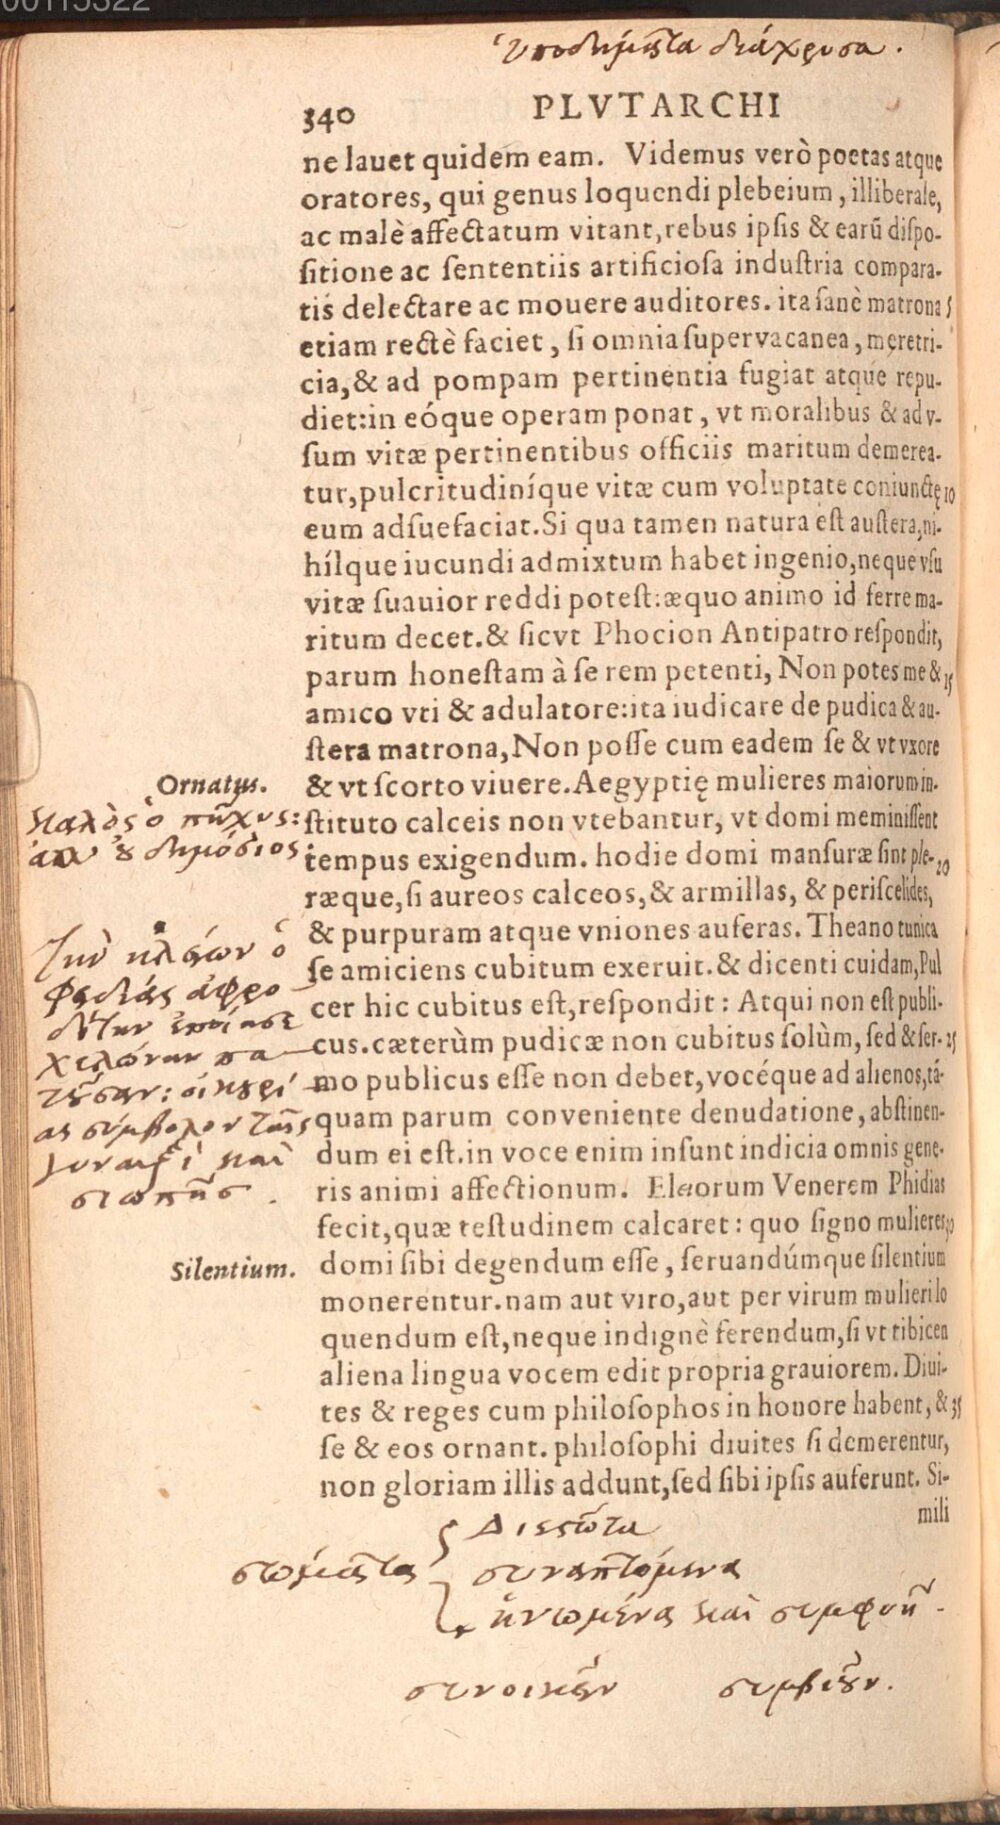 00115322
ὑποδήματα διάχρυσα.
340 PLVTARCHI
ne lauet quidem eam. Videmus verò poetas atque
oratores, qui genus loquendi plebeium, illiberale,
ac malè affectatum vitant, rebus ipſis & earũ diſpo-
ſitione ac ſententiis artificioſa induſtria compara-
tis delectare ac mouere auditores. ita ſanè matrona 5
etiam rectè faciet, ſi omnia ſupervacanea, meretri-
cia, & ad pompam pertinentia fugiat atque repu-
diet: in eóque operam ponat, vt moralibus & ad v-
ſum vitæ pertinentibus officiis maritum demerea-
tur, pulcritudiníque vitæ cum voluptate coniunctę 10
eum adſuefaciat. Si qua tamen natura eſt auſtera, ni-
hílque iucundi admixtum habet ingenio, neque vſu
vitæ ſuauior reddi poteſt: æquo animo id ferre ma-
ritum decet. & ſicvt Phocion Antipatro reſpondit,
parum honeſtam à ſe rem petenti, Non potes me & 15
amico vti & adulatore: ita iudicare de pudica & au-
ſtera matrona, Non poſſe cum eadem ſe & vt vxore
Ornatus.
& vt ſcorto viuere. Aegyptię mulieres maiorum in-
καλὸς ὁ πῆχυς:
ſtituto calceis non vtebantur, vt domi meminiſſent
ἀλλ' οὐ δημόσιος:
tempus exigendum. hodie domi manſuræ ſint ple- 20
ræque, ſi aureos calceos, & armillas, & periſcelides,
& purpuram atque vniones auferas. Theano tunica
τὴν ἠλείων ὁ
ſe amiciens cubitum exeruit. & dicenti cuidam, Pul
Φειδίας ἀφρο-
cer hic cubitus eſt, reſpondit: Atqui non eſt publi-
δίτην ἐποίησε
cus. cæterùm pudicæ non cubitus ſolùm, ſed & ſer- 25
χελώνην πα-
τοῦσαν: οἰκουρί-
mo publicus eſſe non debet, vocéque ad alienos, tã-
ας σύμβολον ταῖς
quam parum conveniente denudatione, abſtinen-
γυναιξὶ καὶ
dum ei eſt. in voce enim inſunt indicia omnis gene-
σιωπῆς.
ris animi affectionum. Eleorum Venerem Phidias
fecit, quæ teſtudinem calcaret: quo ſigno mulieres 30
Silentium.
domi ſibi degendum eſſe, ſeruandúmque ſilentium
monerentur. nam aut viro, aut per virum mulieri lo
quendum eſt, neque indignè ferendum, ſi vt tibicen
aliena lingua vocem edit propria grauiorem. Diui-
tes & reges cum philoſophos in honore habent, & 35
ſe & eos ornant. philoſophi diuites ſi demerentur,
non gloriam illis addunt, ſed ſibi ipſis auferunt. Si-
mili
διεστῶτα
σώματα συναπτόμενα
ἡνωμένα καὶ συμφυῆ.
συνοικεῖν συμβιοῦν.